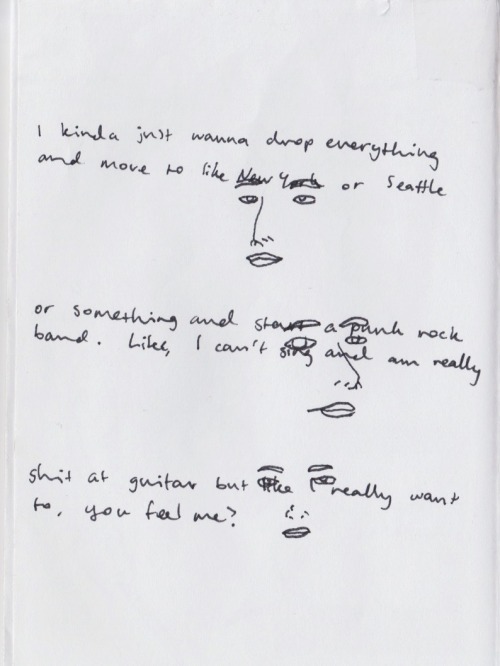 I kinda just wanna drop everything
and move to like New York or Seattle
or something and start a punk rock
band. Like, I can't sing and am really
shit at guitar but like I really want
to, you feel me?